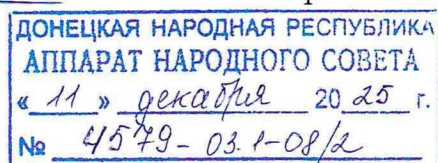 ДОНЕЦКАЯ НАРОДНАЯ РЕСПУБЛИКА
АППАРАТ НАРОДНОГО СОВЕТА
« 11 » декабря 20 25 г.
№ 4579-03.1-08/2